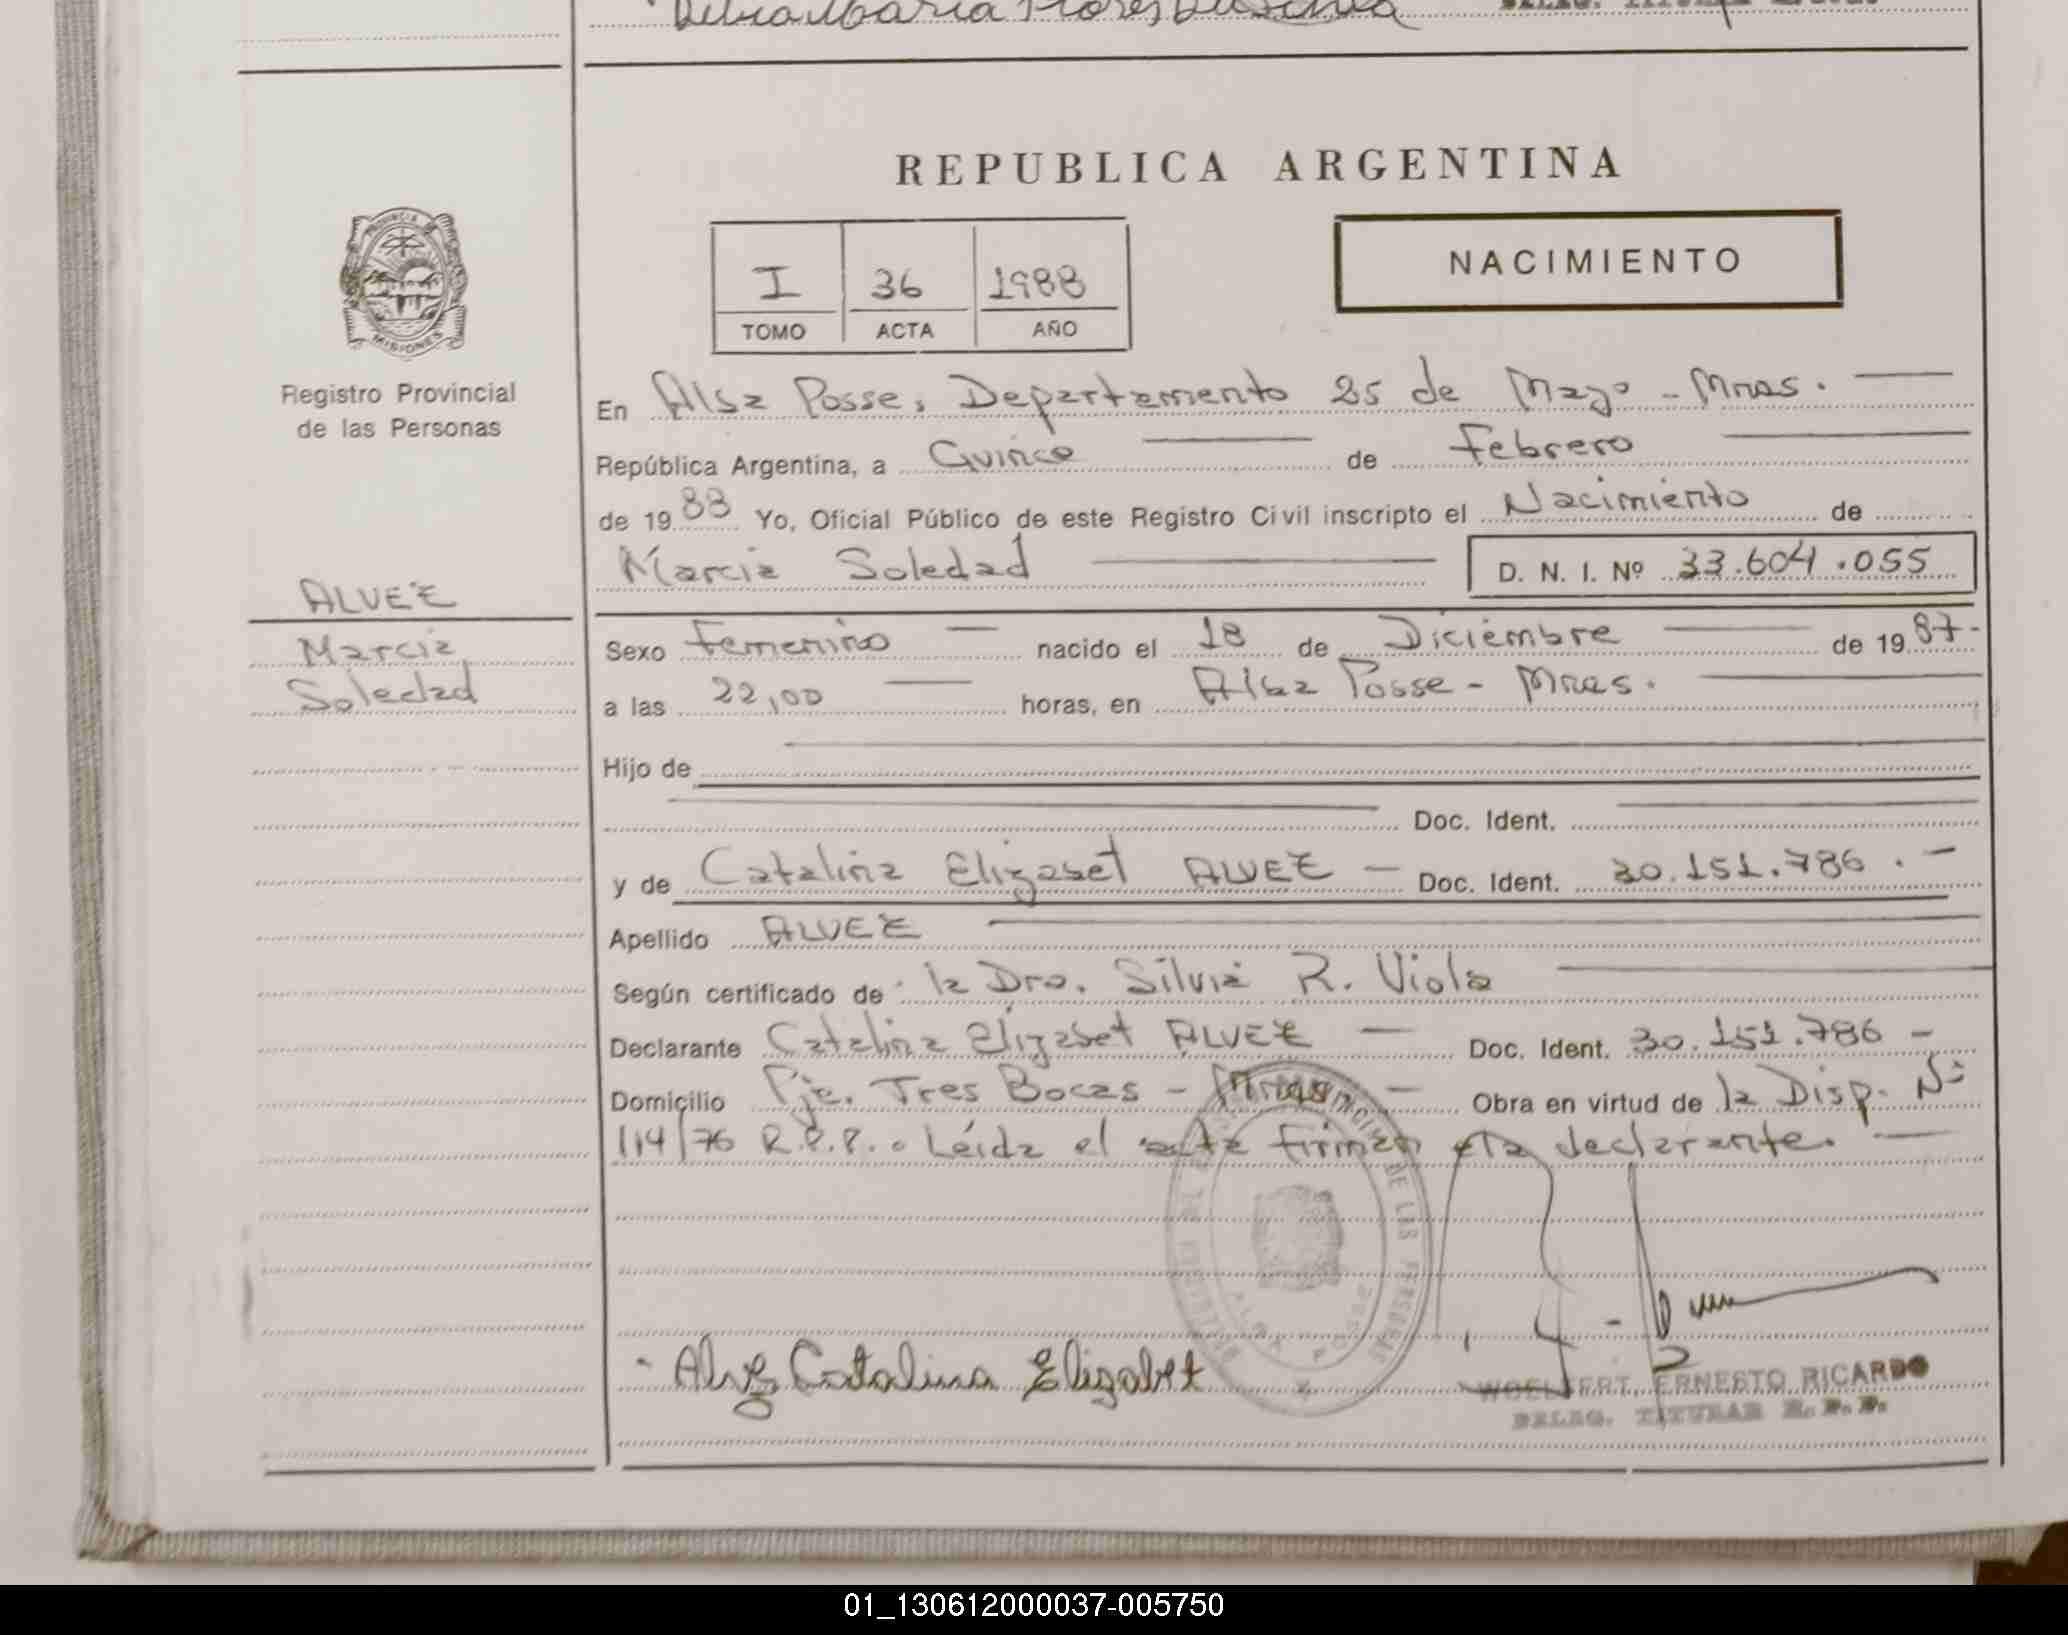 Delia Maria Flores Da Silva
REPUBLICA ARGENTINA
PROVINCIA
MISIONES
I 36 1988
TOMO ACTA AÑO
NACIMIENTO
Registro Provincial
de las Personas
En Alba Posse, Departamento 25 de Mayo - Mnes.
República Argentina, a Quince de Febrero
de 19 88 Yo, Oficial Público de este Registro Civil inscripto el Nacimiento de
Marcia Soledad D. N. I. Nº 33.604.055
ALVEZ
Marcia
Soledad
Sexo Femenino nacido el 18 de Diciembre de 19 87-
a las 22,00 horas, en Alba Posse - Mnes.
Hijo de
Doc. Ident.
y de Catalina Elizabet ALVEZ - Doc. Ident. 30.151.786.-
Apellido ALVEZ
Según certificado de la Dra. Silvia R. Viola
Declarante Catalina Elizabet ALVEZ - Doc. Ident. 30.151.786 -
Domicilio Pje. Tres Bocas - Mnes. - Obra en virtud de la Disp. Nº
114/76 R.P.P. Leída el acta firman la declarante.
DE LAS PERSONAS
ALBA POSSE
Alvez Catalina Elizabet
WOELFERT, ERNESTO RICARDO
DELEG. TITULAR R. P. P.
01_130612000037-005750